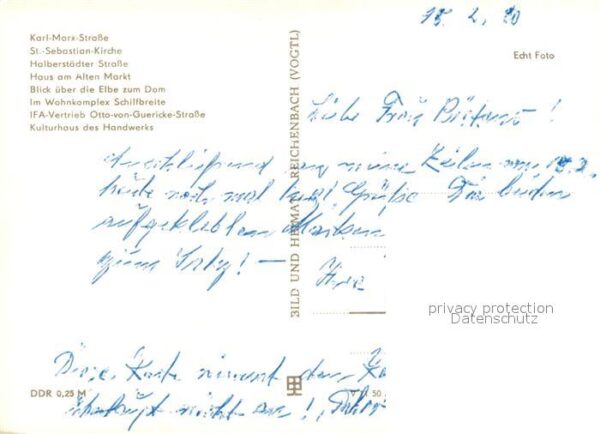 15. 2. 80
Karl-Marx-Straße
St.-Sebastian-Kirche
Halberstädter Straße
Haus am Alten Markt
Blick über die Elbe zum Dom
Im Wohnkomplex Schilfbreite
IFA-Vertrieb Otto-von-Guericke-Straße
Kulturhaus des Handwerks
Echt Foto
BILD UND HEIMAT REICHENBACH (VOGTL)
Liebe Frau !
Anschließend an meine Zeilen vom
heute noch mal kurz Grüße Die beiden
aufgeklebten Marken
zum !—
Ihre
privacy protection
Datenschutz
Diese Karte nimmt der
überhaupt nicht an!
DDR 0,25 M